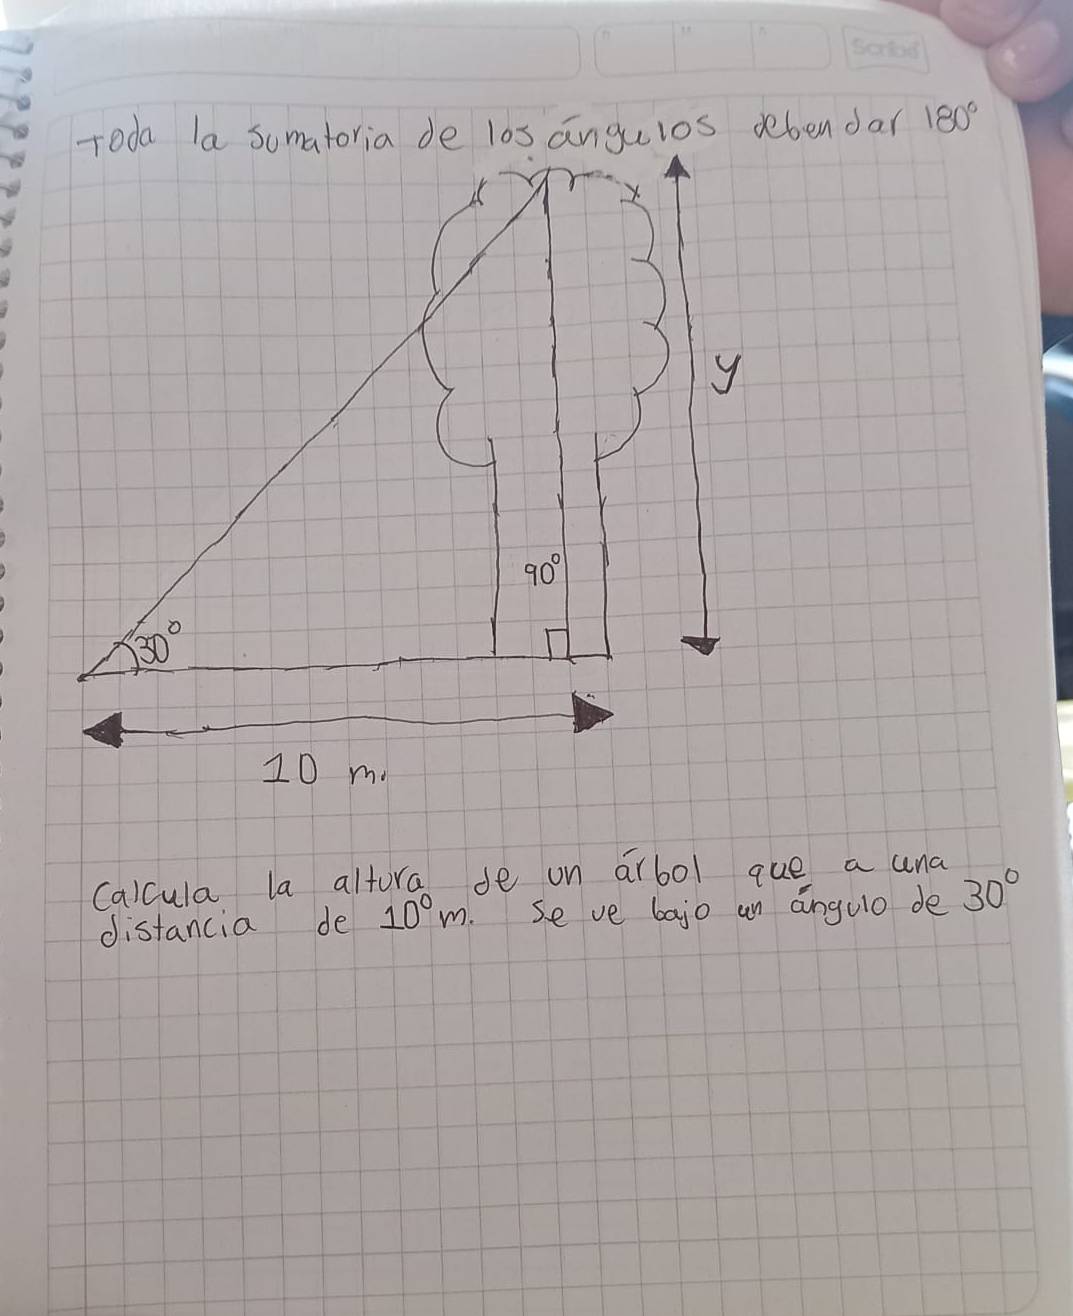 Scribe
Toda la sumatoria de los ángulos deben dar 180°
y
90°
30°
10 m.
Calcula la altura de un árbol que a una
distancia de 10° m. se ve bajo un ángulo de 30°